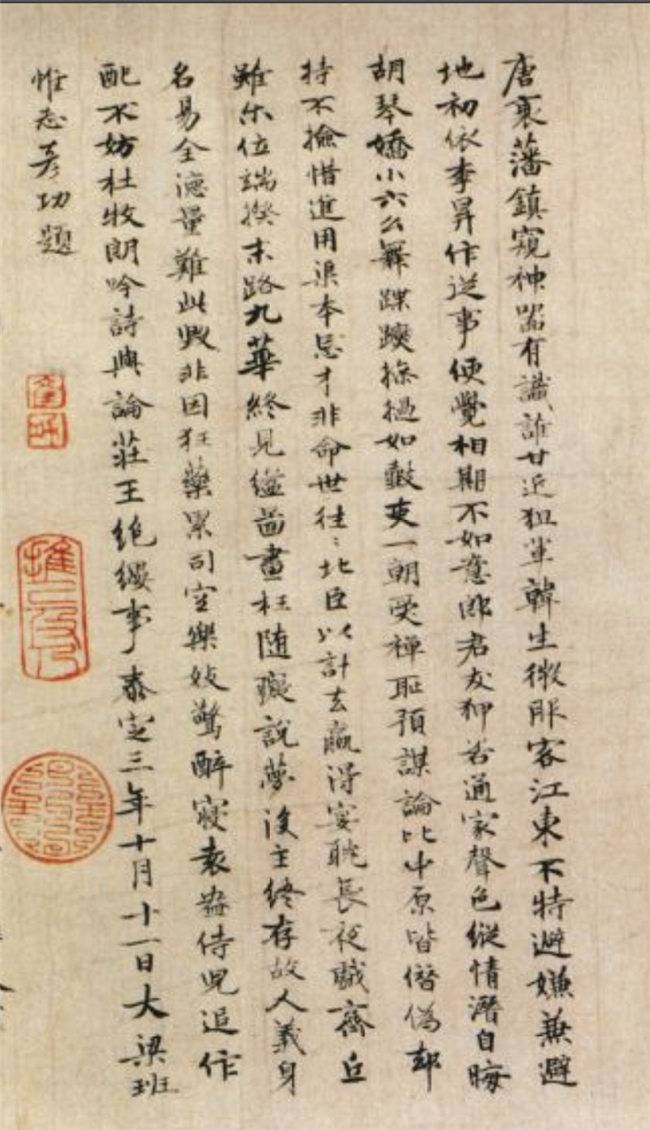 唐衰藩鎮窺神器有識誰甘近狙輩韓生微服客江東不特避嫌兼避
地初依李昪作從事便覺相期不如意郎君友狎若通家聲色縱情潛自晦
胡琴嬌小六幺舞蹀躞摻撾如鼓吏一朝受禪恥預謀論比中原皆僭偽却
持不撿惜進用渠本忌才非命世往〻北臣以計去贏得宴耽長夜戲齊丘
雖尔位端揆末路九華終見縊啚畫枉隨癡說夢後主終存故人義身
名易全德量難此毁非因狂藥累司空樂妓驚醉寢袁盎侍兒追作
配不妨杜牧朗吟詩與論莊王絕纓事泰定三年十月十一日大梁班
惟志彥功題